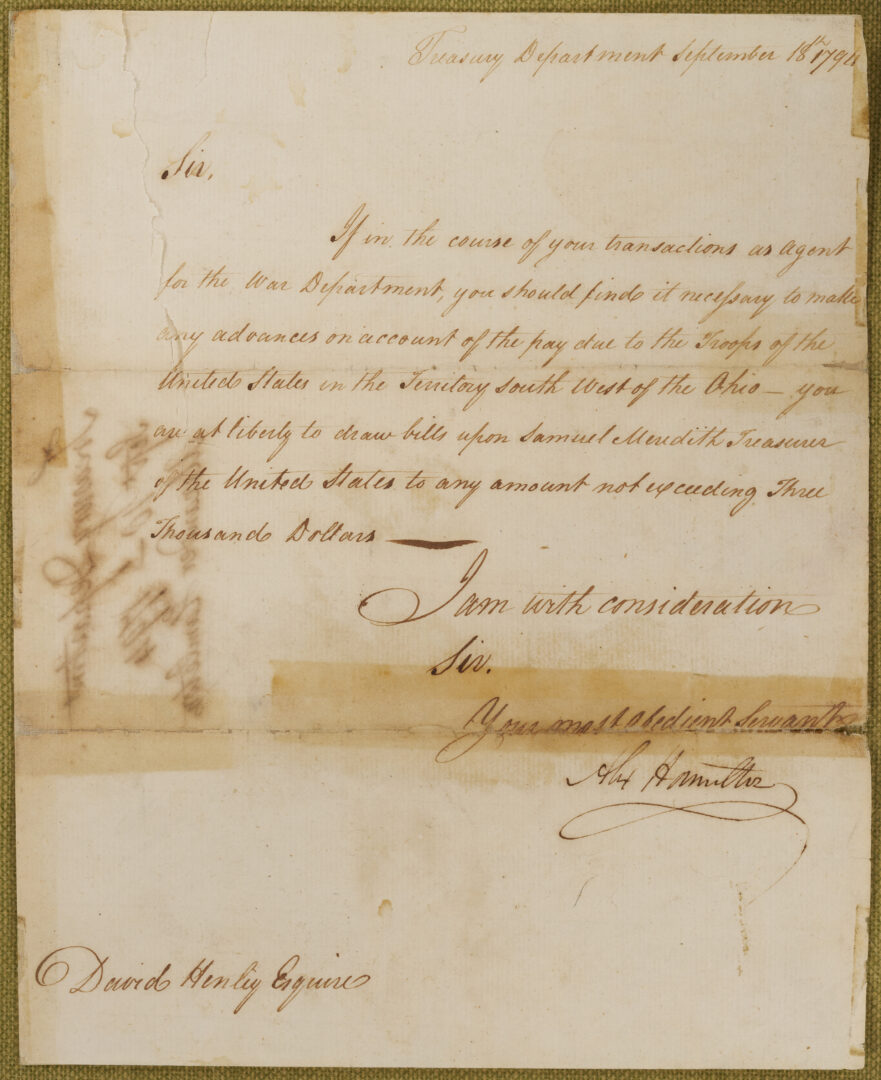 Treasury Department September 18th 1794
Sir,
If in the course of your transactions as Agent
for the War Department, you should find it necessary to make
any advances on account of the pay due to the Troops of the
United States in the Territory South West of the Ohio — you
are at liberty to draw bills upon Samuel Meredith Treasurer
of the United States to any amount not exceeding Three
Thousand Dollars —
I am with consideration
Sir.
Your most obedient Servant
Alex Hamilton
David Henley Esquire